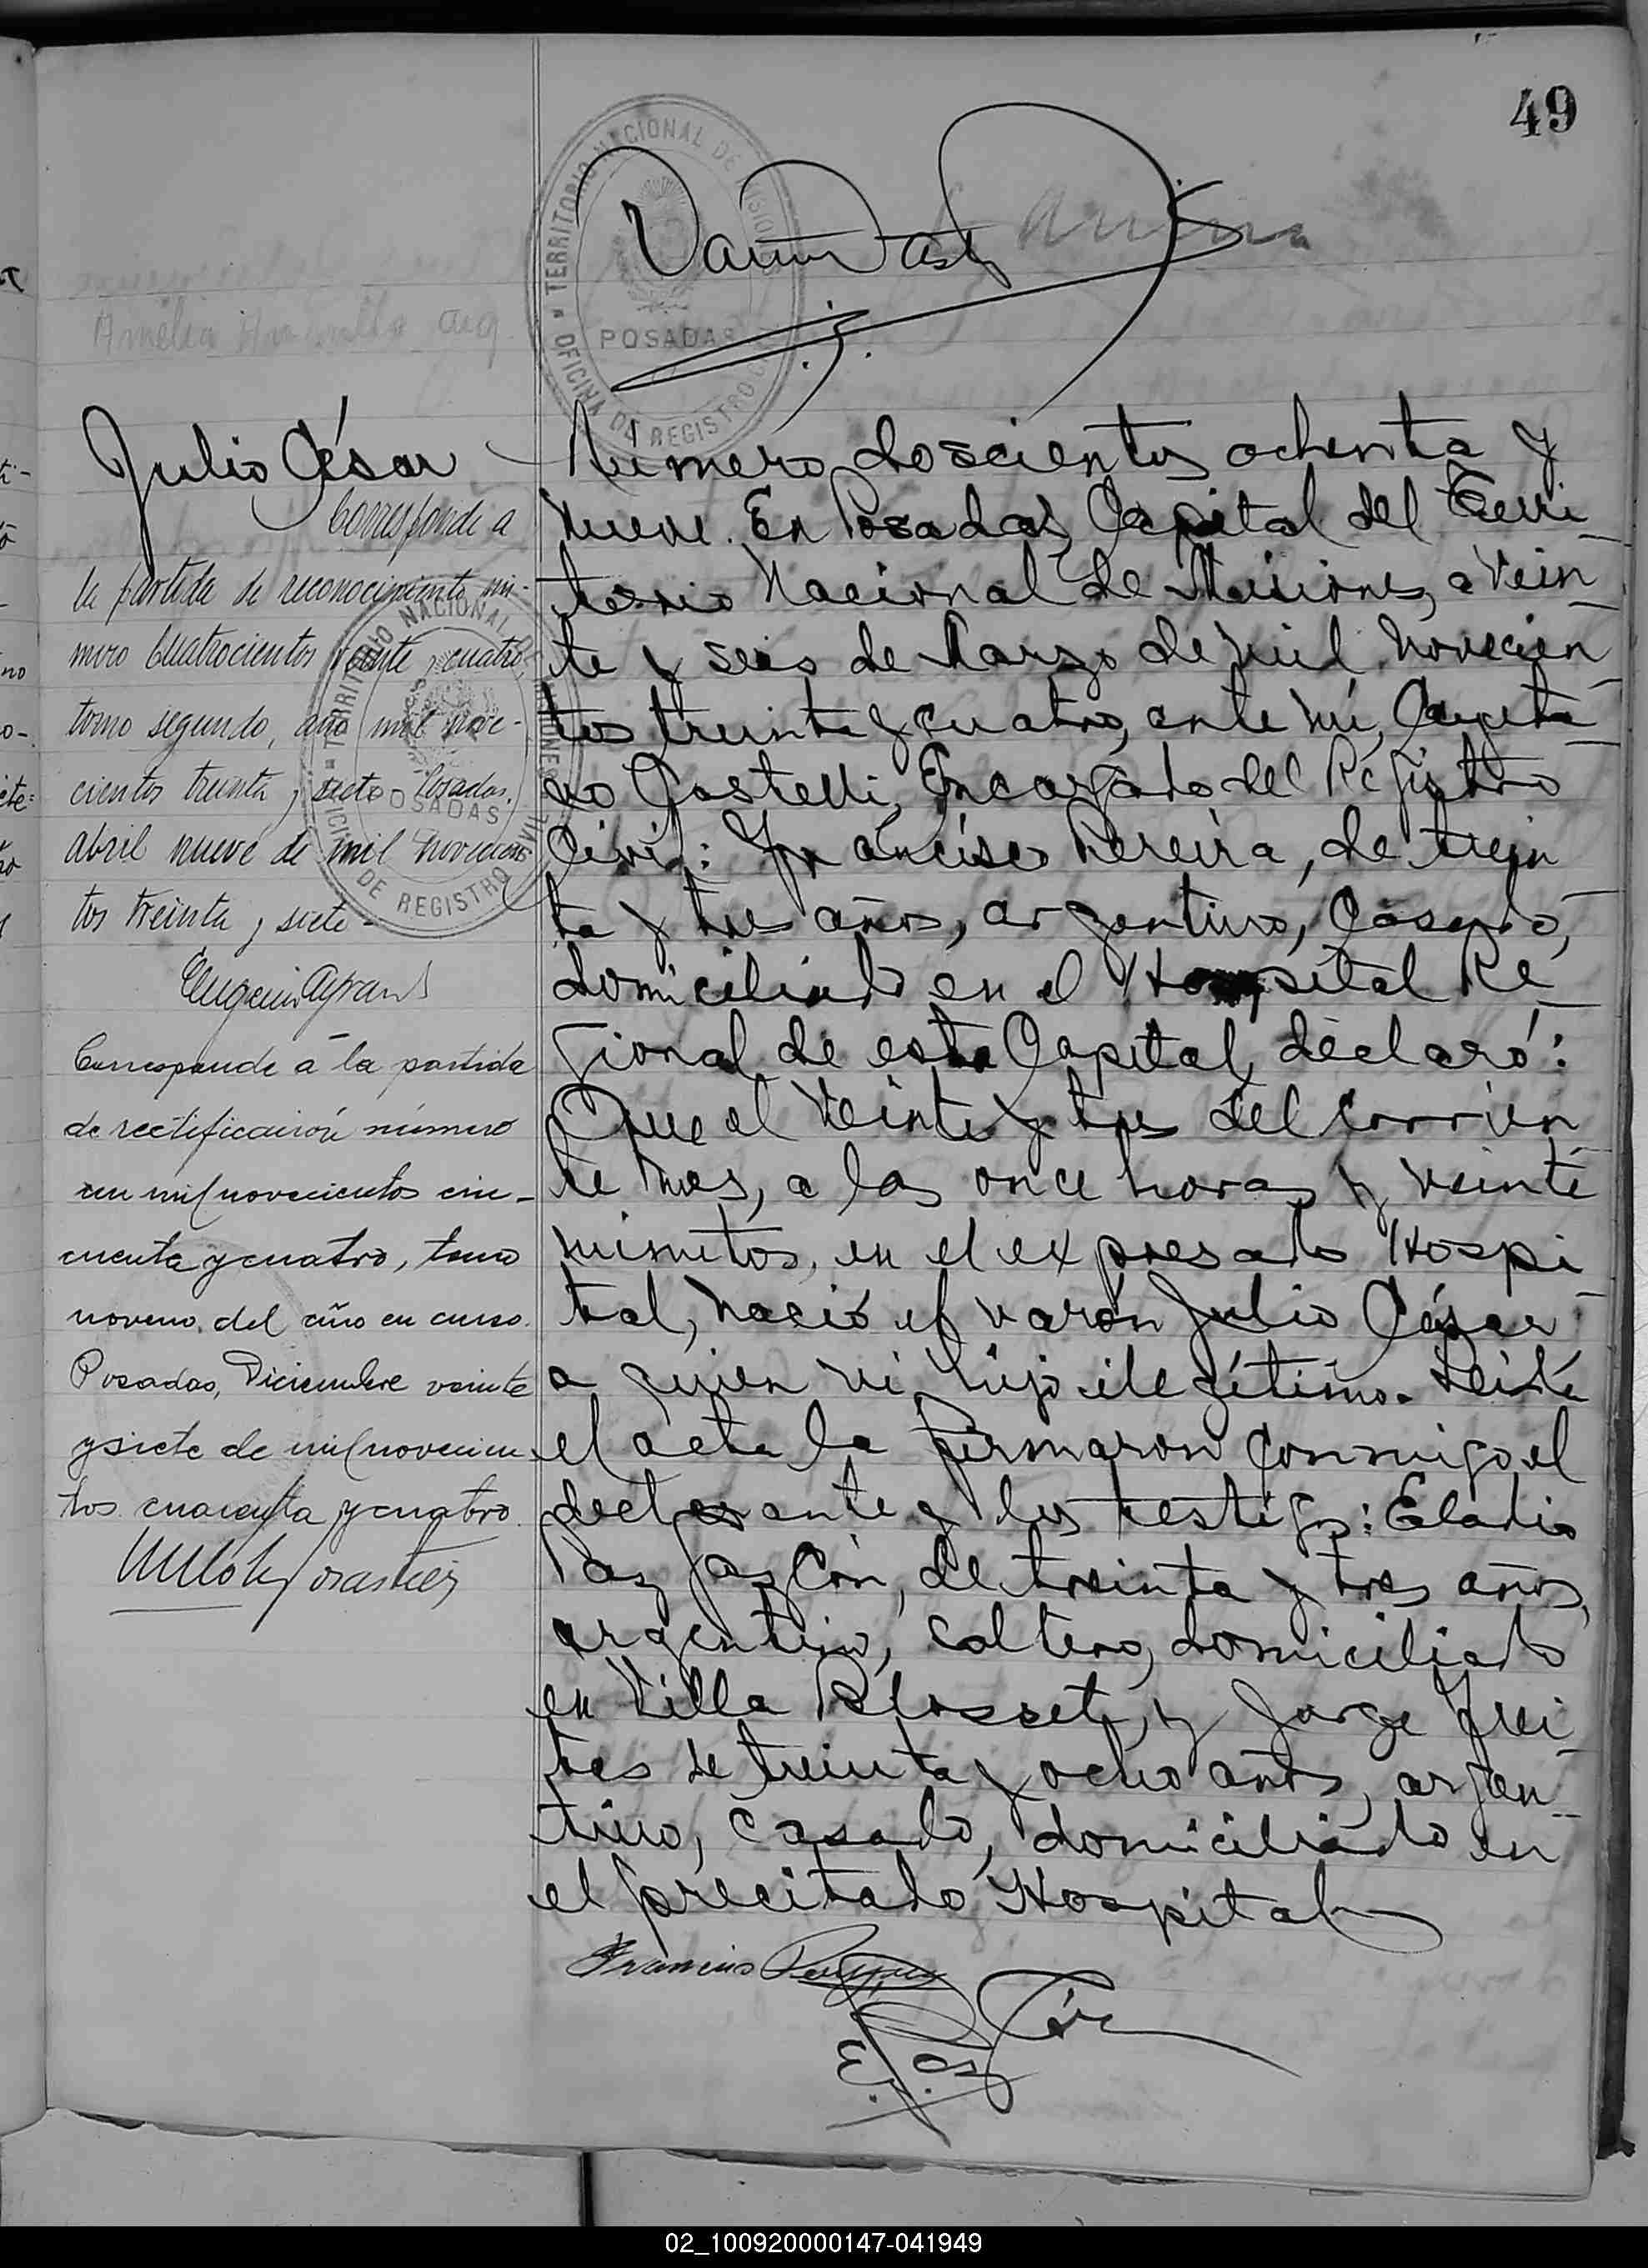 49
TERRITORIO NACIONAL DE MISIONES
OFICINA DE REGISTRO CIVIL
POSADAS
Julio César
Corresponde a
la partida de reconocimiento nú-
mero cuatrocientos veinte y cuatro,
tomo segundo, año mil nove-
cientos treinta y siete Posadas,
abril nueve de mil novecien
tos treinta y siete-
TERRITORIO NACIONAL DE MISIONES
OFICINA DE REGISTRO CIVIL
POSADAS
Corresponde á la partida
de rectificación número
un mil novecientos cin-
cuenta y cuatro, tomo
noveno del año en curso.
Posadas, Diciembre veinte
y siete de mil novecien
tos cuarenta y cuatro.
Número doscientos ochenta y
nueve. En Posadas, Capital del Terri
torio Nacional de Misiones, a vein
te y seis de Marzo de mil novecien
tos treinta y cuatro, ante mí, Cayeta
no Castelli, Encargado del Registro
Civil: Francisco Pereira, de trein
ta y tres años, argentino, casado,
domiciliado en el Hospital Re
gional de esta Capital, declaró:
Que el veinte y tres del corrien
te mes, a las once horas y veinte
minutos, en el expresado Hospi
tal, nació el varón Julio César
a quien vi, hijo ilegítimo. Leída
el acta la firmaron conmigo, el
declarante y los testigos: Eladio
Paz, de treinta y tres años,
argentino, soltero, domiciliado
en Villa Blosset, y Jorge Frei
tes de treinta y ocho años, argen
tino, casado, domiciliado en
el precitado Hospital
Francisco
E. Paz
02_100920000147-041949